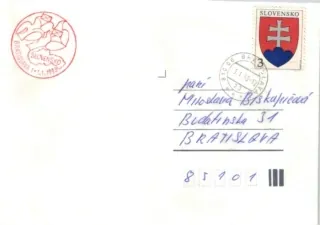 SLOVENSKO
3
pani
Miloslava Biskupičová
Budatínska 31
BRATISLAVA
85101